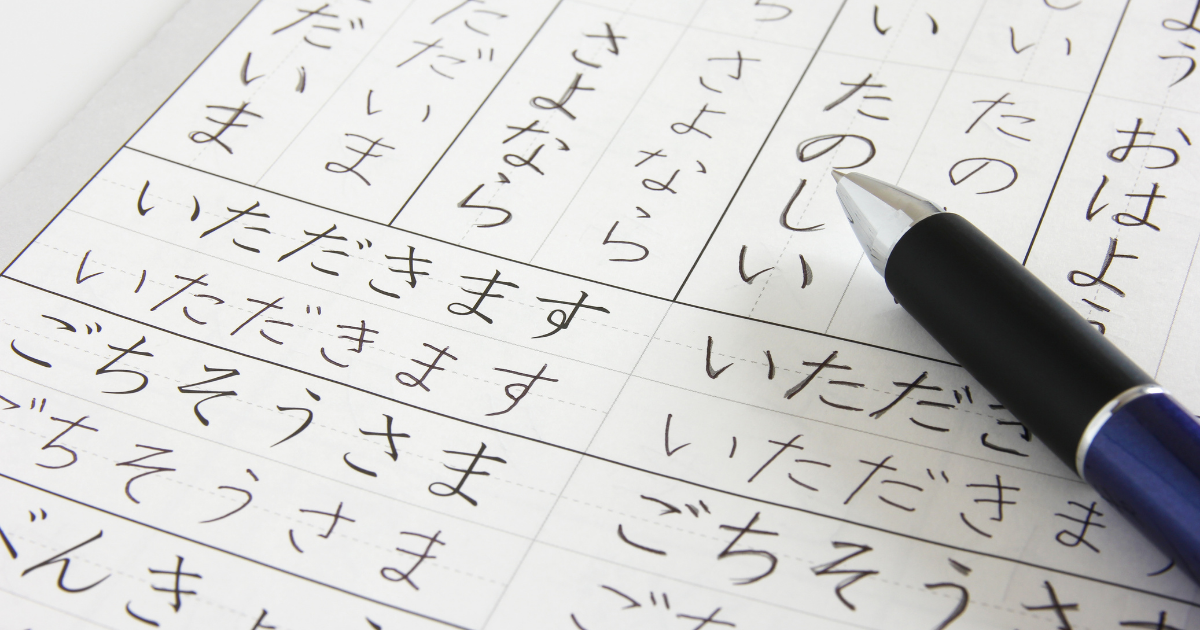 よう おはよう
い たの
い たのしい
ら さよなら
さよなら
ただいま
だいま
いただきます
いただきます
ごちそうさま
ごちそうさま
べんきょ
いただき
いただきま
ごちそうさ
ごち